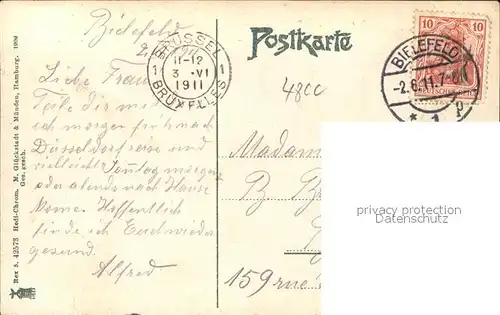 Bielefeld
2.6.1911
Liebe Frau
Teile dir mit
ich morgen früh nach
Düsseldorf reise und
vielleicht Sonntag morgen
oder abends nach Hause
komme. Hoffentlich
finde ich Euch wieder
gesund.
Alfred
BRÜSSEL
1 11-12 1
3 VI
1911
BRUXELLES
Postkarte
4800
10 10
DEUTSCHES REICH
BIELEFELD
-2.6.11.7-8
* 1
Madam
B B
159 rue
privacy protection
Datenschutz
Rex S. 42573 Heli-Chrom. M. Glückstadt & Münden, Hamburg. 1909
Ges. gesch.